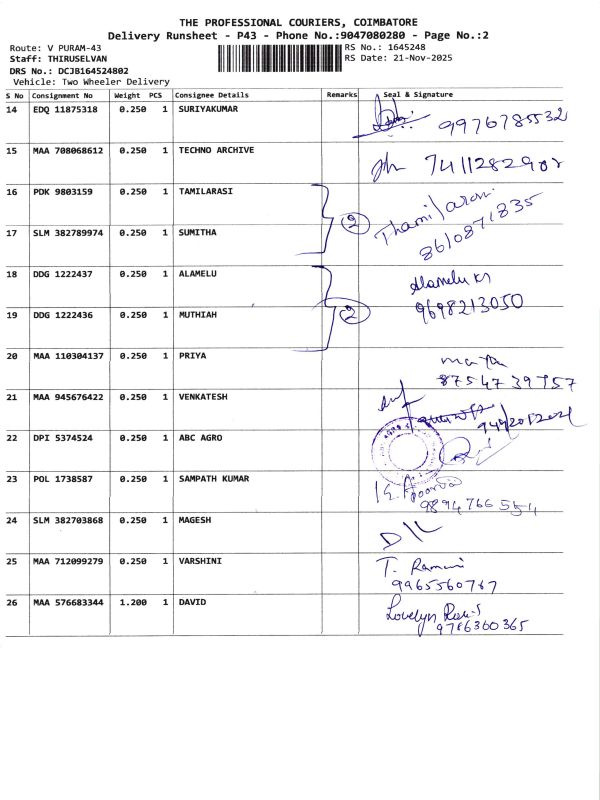 THE PROFESSIONAL COURIERS, COIMBATORE
Delivery Runsheet - P43 - Phone No.:9047080280 - Page No.:2
Route: V PURAM-43 RS No.: 1645248
Staff: THIRUSELVAN RS Date: 21-Nov-2025
DRS No.: DCJB164524802
Vehicle: Two Wheeler Delivery
S No Consignment No Weight PCS Consignee Details Remarks Seal & Signature
14 EDQ 11875318 0.250 1 SURIYAKUMAR
9976785532
15 MAA 708068612 0.250 1 TECHNO ARCHIVE
7411282902
16 PDK 9803159 0.250 1 TAMILARASI
2 Thamilarasi
8610871835
17 SLM 382789974 0.250 1 SUMITHA
18 DDG 1222437 0.250 1 ALAMELU
Alamelu
9698213050
2
19 DDG 1222436 0.250 1 MUTHIAH
20 MAA 110304137 0.250 1 PRIYA
8754739757
21 MAA 945676422 0.250 1 VENKATESH
22 DPI 5374524 0.250 1 ABC AGRO
23 POL 1738587 0.250 1 SAMPATH KUMAR
9894766554
24 SLM 382703868 0.250 1 MAGESH
25 MAA 712099279 0.250 1 VARSHINI
T. Ramani
9965560767
26 MAA 576683344 1.200 1 DAVID
Lovelyn
9786360365